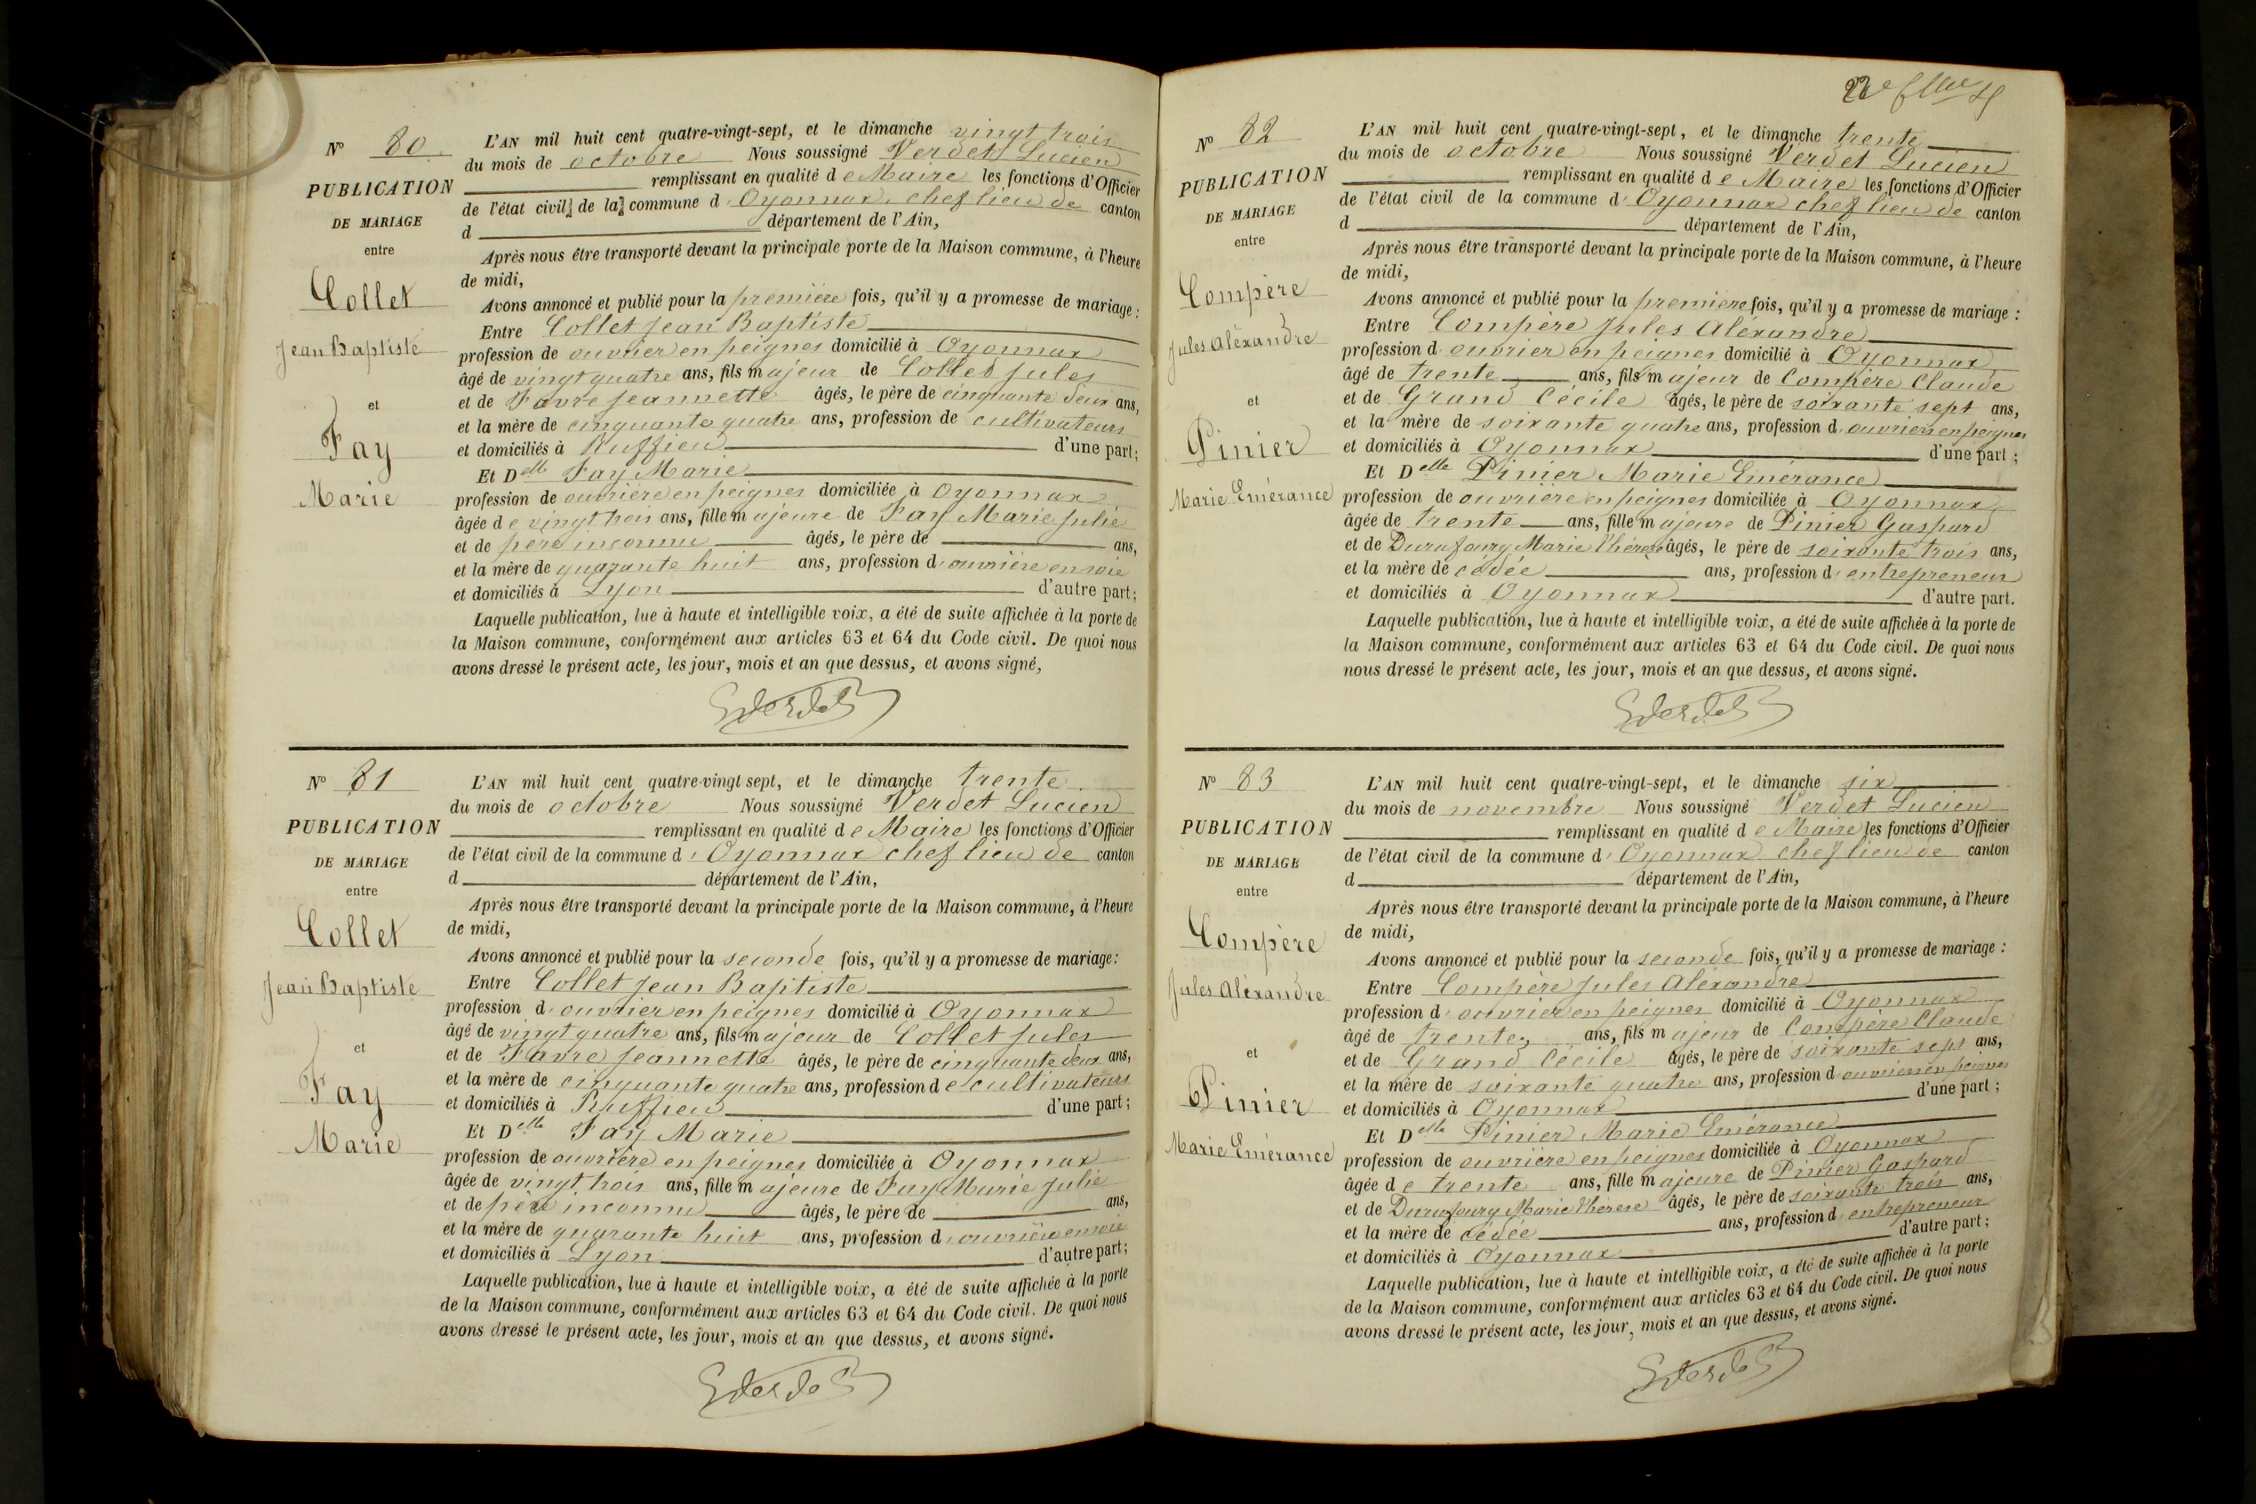 Nº 80
PUBLICATION
DE MARIAGE
entre
Collet
Jean Baptiste
et
Fay
Marie
L'AN mil huit cent quatre-vingt-sept, et le dimanche vingt trois
du mois de octobre Nous soussigné Verdet Lucien
remplissant en qualité de Maire les fonctions d'Officier
de l'état civil de la commune d'Oyonnax, chef lieu de canton
d département de l'Ain,
Après nous être transporté devant la principale porte de la Maison commune, à l'heure
de midi,
Avons annoncé et publié pour la première fois, qu'il y a promesse de mariage :
Entre Collet Jean Baptiste
profession de ouvrier en peignes domicilié à Oyonnax
âgé de vingt quatre ans, fils majeur de Collet Jules
et de Favre Jeannette âgés, le père de cinquante deux ans,
et la mère de cinquante quatre ans, profession de cultivateurs
et domiciliés à Ruffieu d'une part ;
Et Delle Fay Marie
profession de ouvrière en peignes domiciliée à Oyonnax
âgée de vingt trois ans, fille majeure de Fay Marie Julie
et de père inconnu âgés, le père de ans,
et la mère de quarante huit ans, profession d'ouvrière en soie
et domiciliés à Lyon d'autre part ;
Laquelle publication, lue à haute et intelligible voix, a été de suite affichée à la porte de
la Maison commune, conformément aux articles 63 et 64 du Code civil. De quoi nous
avons dressé le présent acte, les jour, mois et an que dessus, et avons signé,
Verdet
Nº 81
PUBLICATION
DE MARIAGE
entre
Collet
Jean Baptiste
et
Fay
Marie
L'AN mil huit cent quatre-vingt sept, et le dimanche trente
du mois de octobre Nous soussigné Verdet Lucien
remplissant en qualité de Maire les fonctions d'Officier
de l'état civil de la commune d'Oyonnax chef lieu de canton
d département de l'Ain,
Après nous être transporté devant la principale porte de la Maison commune, à l'heure
de midi,
Avons annoncé et publié pour la seconde fois, qu'il y a promesse de mariage :
Entre Collet Jean Baptiste
profession d'ouvrier en peignes domicilié à Oyonnax
âgé de vingt quatre ans, fils majeur de Collet Jules
et de Favre Jeannette âgés, le père de cinquante deux ans,
et la mère de cinquante quatre ans, profession de cultivateurs
et domiciliés à Ruffieu d'une part ;
Et Delle Fay Marie
profession de ouvrière en peignes domiciliée à Oyonnax
âgée de vingt trois ans, fille majeure de Fay Marie Julie
et de père inconnu âgés, le père de ans,
et la mère de quarante huit ans, profession d'ouvrière en soie
et domiciliés à Lyon d'autre part ;
Laquelle publication, lue à haute et intelligible voix, a été de suite affichée à la porte
de la Maison commune, conformément aux articles 63 et 64 du Code civil. De quoi nous
avons dressé le présent acte, les jour, mois et an que dessus, et avons signé.
Verdet
Nº 82
PUBLICATION
DE MARIAGE
entre
Compère
Jules Aléxandre
et
Pinier
Marie Emérance
L'AN mil huit cent quatre-vingt-sept, et le dimanche trente
du mois de octobre Nous soussigné Verdet Lucien
remplissant en qualité de Maire les fonctions d'Officier
de l'état civil de la commune d'Oyonnax chef lieu de canton
d département de l'Ain,
Après nous être transporté devant la principale porte de la Maison commune, à l'heure
de midi,
Avons annoncé et publié pour la première fois, qu'il y a promesse de mariage :
Entre Compère Jules Aléxandre
profession d'ouvrier en peignes domicilié à Oyonnax
âgé de trente ans, fils majeur de Compère Claude
et de Grand Cécile âgés, le père de soixante sept ans,
et la mère de soixante quatre ans, profession d'ouvriers en peignes
et domiciliés à Oyonnax d'une part ;
Et Delle Pinier Marie Emérance
profession de ouvrière en peignes domiciliée à Oyonnax
âgée de trente ans, fille majeure de Pinier Gaspard
et de Durafourg Marie Thérèse âgés, le père de soixante trois ans,
et la mère de cédée ans, profession d'entrepreneur
et domiciliés à Oyonnax d'autre part.
Laquelle publication, lue à haute et intelligible voix, a été de suite affichée à la porte de
la Maison commune, conformément aux articles 63 et 64 du Code civil. De quoi nous
nous dressé le présent acte, les jour, mois et an que dessus, et avons signé.
Verdet
Nº 83
PUBLICATION
DE MARIAGE
entre
Compère
Jules Aléxandre
et
Pinier
Marie Emérance
L'AN mil huit cent quatre-vingt-sept, et le dimanche six
du mois de novembre Nous soussigné Verdet Lucien
remplissant en qualité de Maire les fonctions d'Officier
de l'état civil de la commune d'Oyonnax chef lieu de canton
d département de l'Ain,
Après nous être transporté devant la principale porte de la Maison commune, à l'heure
de midi,
Avons annoncé et publié pour la seconde fois, qu'il y a promesse de mariage :
Entre Compère Jules Aléxandre
profession d'ouvrier en peignes domicilié à Oyonnax
âgé de trente, ans, fils majeur de Compère Claude
et de Grand Cécile âgés, le père de soixante sept ans,
et la mère de soixante quatre ans, profession d'ouvriers en peignes
et domiciliés à Oyonnax d'une part ;
Et Delle Pinier Marie Emérance
profession de ouvrière en peignes domiciliée à Oyonnax
âgée de trente ans, fille majeure de Pinier Gaspard
et de Durafourg Marie Thérèse âgés, le père de soixante trois ans,
et la mère de cédée ans, profession d'entrepreneur
et domiciliés à Oyonnax d'autre part ;
Laquelle publication, lue à haute et intelligible voix, a été de suite affichée à la porte
de la Maison commune, conformément aux articles 63 et 64 du Code civil. De quoi nous
avons dressé le présent acte, les jour, mois et an que dessus, et avons signé.
Verdet